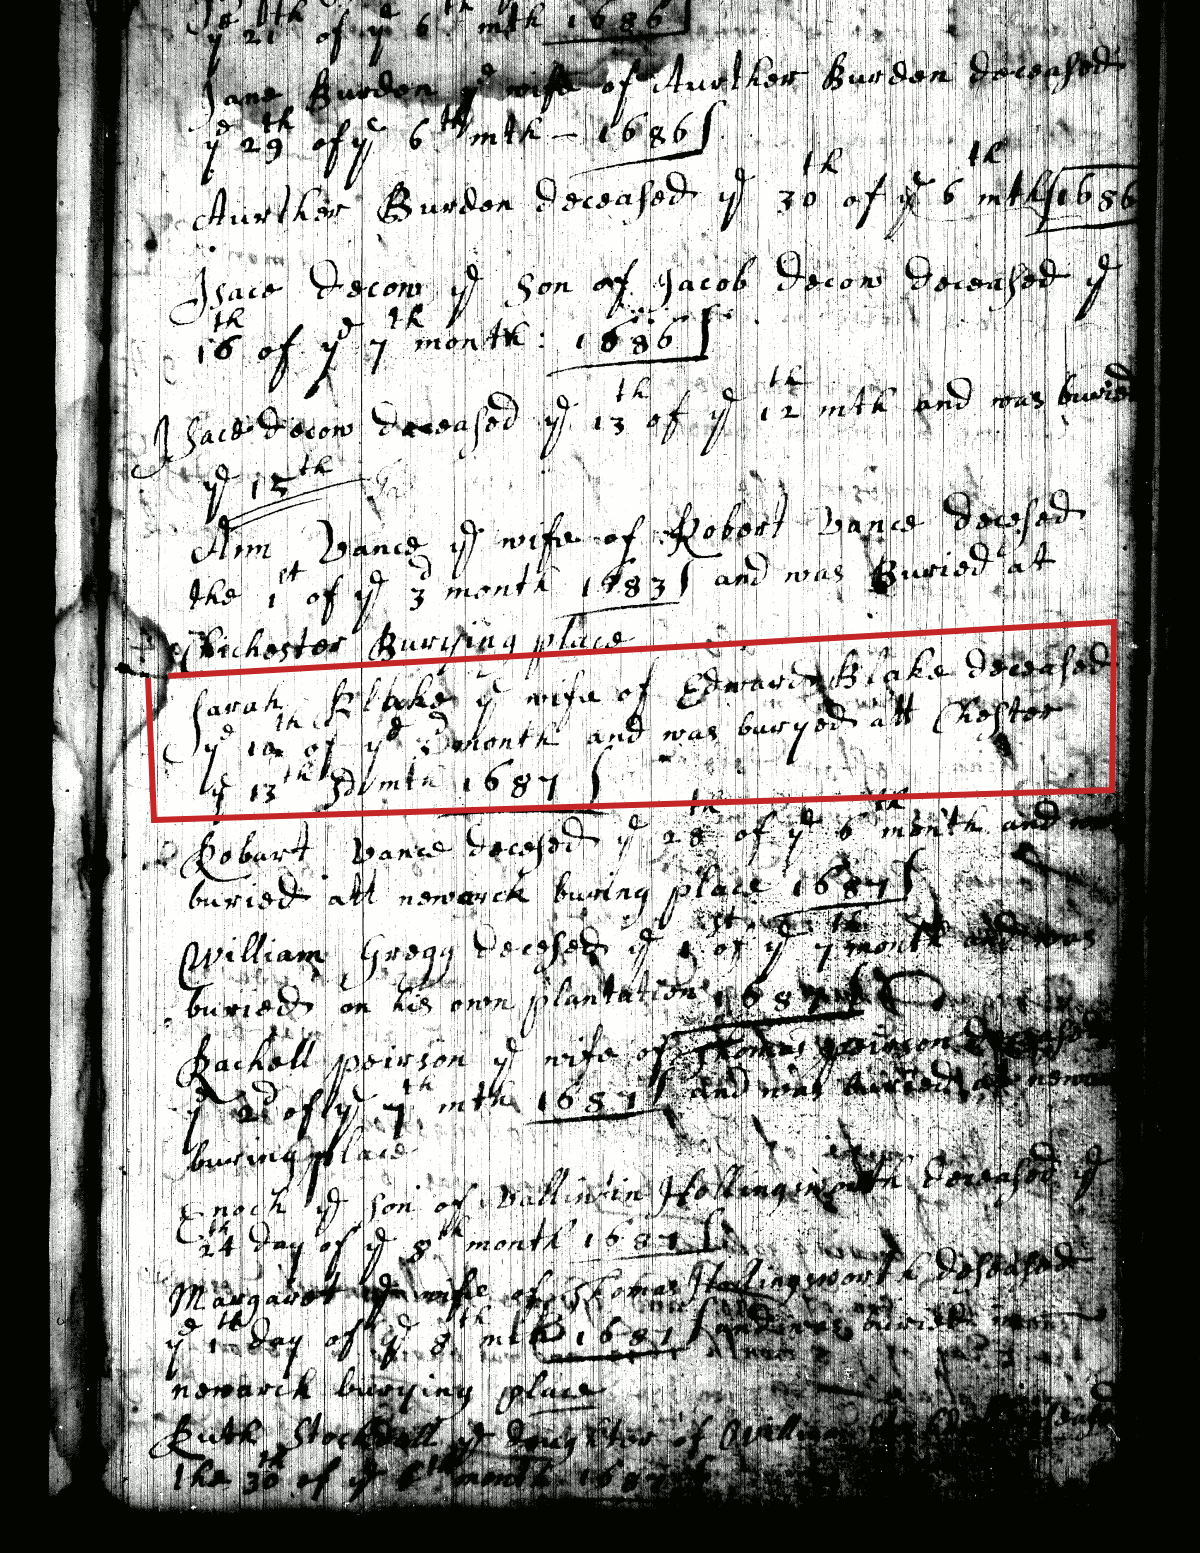 ye 21th of ye 6th mth 1686
Jane Burden ye wife of Aurther Burden deceased
ye 29th of ye 6th mth - 1686
Aurther Burden deceased ye 30th of ye 6th mth 1686
Isace Decow ye son of Jacob Decow deceased ye
16th of ye 7th month: 1686
Isace Decow deceased ye 13th of ye 12th mth and was buried
ye 15th
Ann Vance ye wife of Robert Vance decesed
the 1st of ye 3d month 1683 and was Buried at
Chichester Burying place
Sarah Blake ye wife of Edward Blake deceased
ye 10th of ye 3d month and was buryed att Chester
ye 13th 3d mth 1687
Robart Vance decesed ye 28th of ye 6th month and was
buried att newarck buring place 1687
William Gregg decesed ye 1st of ye 7th month and was
buried on his own plantation 1687
Rachell peirson ye wife of Thomas peirson Deceased
ye 2d of ye 7th mth 1687 and was buried at newark
buring place
Enoch ye son of Vallintin Hollingsworth Deceased ye
24th day of ye 8th month 1687
Margaret ye wife of Thomas Hollingsworth deseased
ye 1th day of ye 8th mth 1687 and was buried
newarck burying place
Ruth Stockdall ye doughter of William
the 30th of ye 6th month 1687